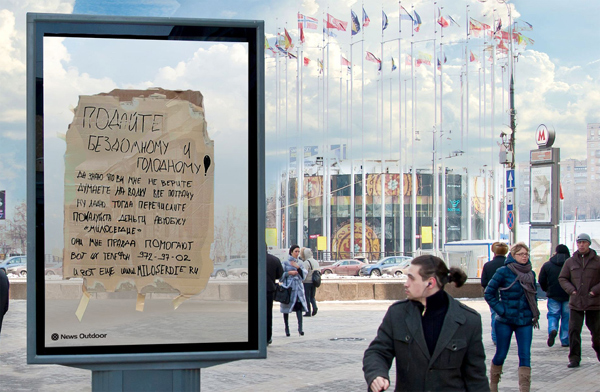 ПОДАЙТЕ
БЕЗДОМНОМУ И
ГОЛОДНОМУ!
ДА ЗНАЮ ЧТО ВЫ МНЕ НЕ ВЕРИТЕ
ДУМАЕТЕ НА ВОДКУ ВСЕ ПОТРАЧУ
НУ ЛАДНО, ТОГДА ПЕРЕЧИСЛИТЕ
ПОЖАЛУЙСТА ДЕНЬГИ В СЛУЖБУ
"МИЛОСЕРДИЕ"
ОНИ МНЕ ПРАВДА ПОМОГАЮТ
ВОТ ИХ ТЕЛЕФОН - 972-97-02
И САЙТ ЕЩЕ WWW.MILOSERDIE.RU
News Outdoor
М